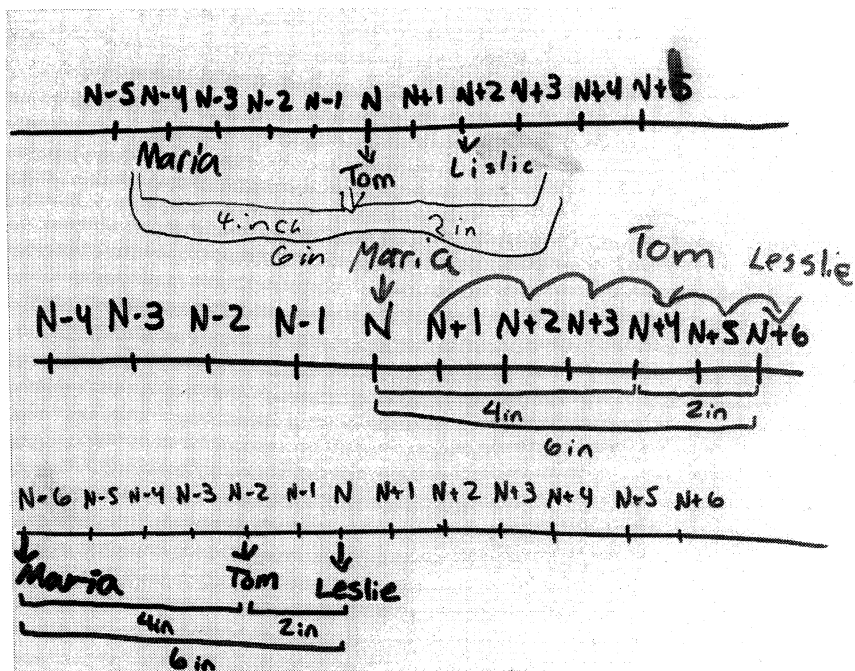 N-5 N-4 N-3 N-2 N-1 N N+1 N+2 N+3 N+4 N+5
Maria Tom Lislie
4 inch 2 in
6 in Maria Tom Lesslie
N-4 N-3 N-2 N-1 N N+1 N+2 N+3 N+4 N+5 N+6
4in 2in
6in
N-6 N-5 N-4 N-3 N-2 N-1 N N+1 N+2 N+3 N+4 N+5 N+6
Maria Tom Leslie
4in 2in
6in